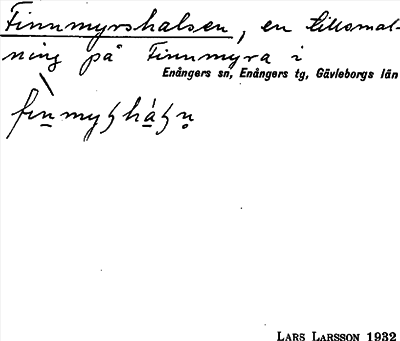 Finnmyrshalsen, en tillsmal-
ning på Finnmyra i
Enångers sn, Enångers tg, Gävleborgs län
LARS LARSSON 1932